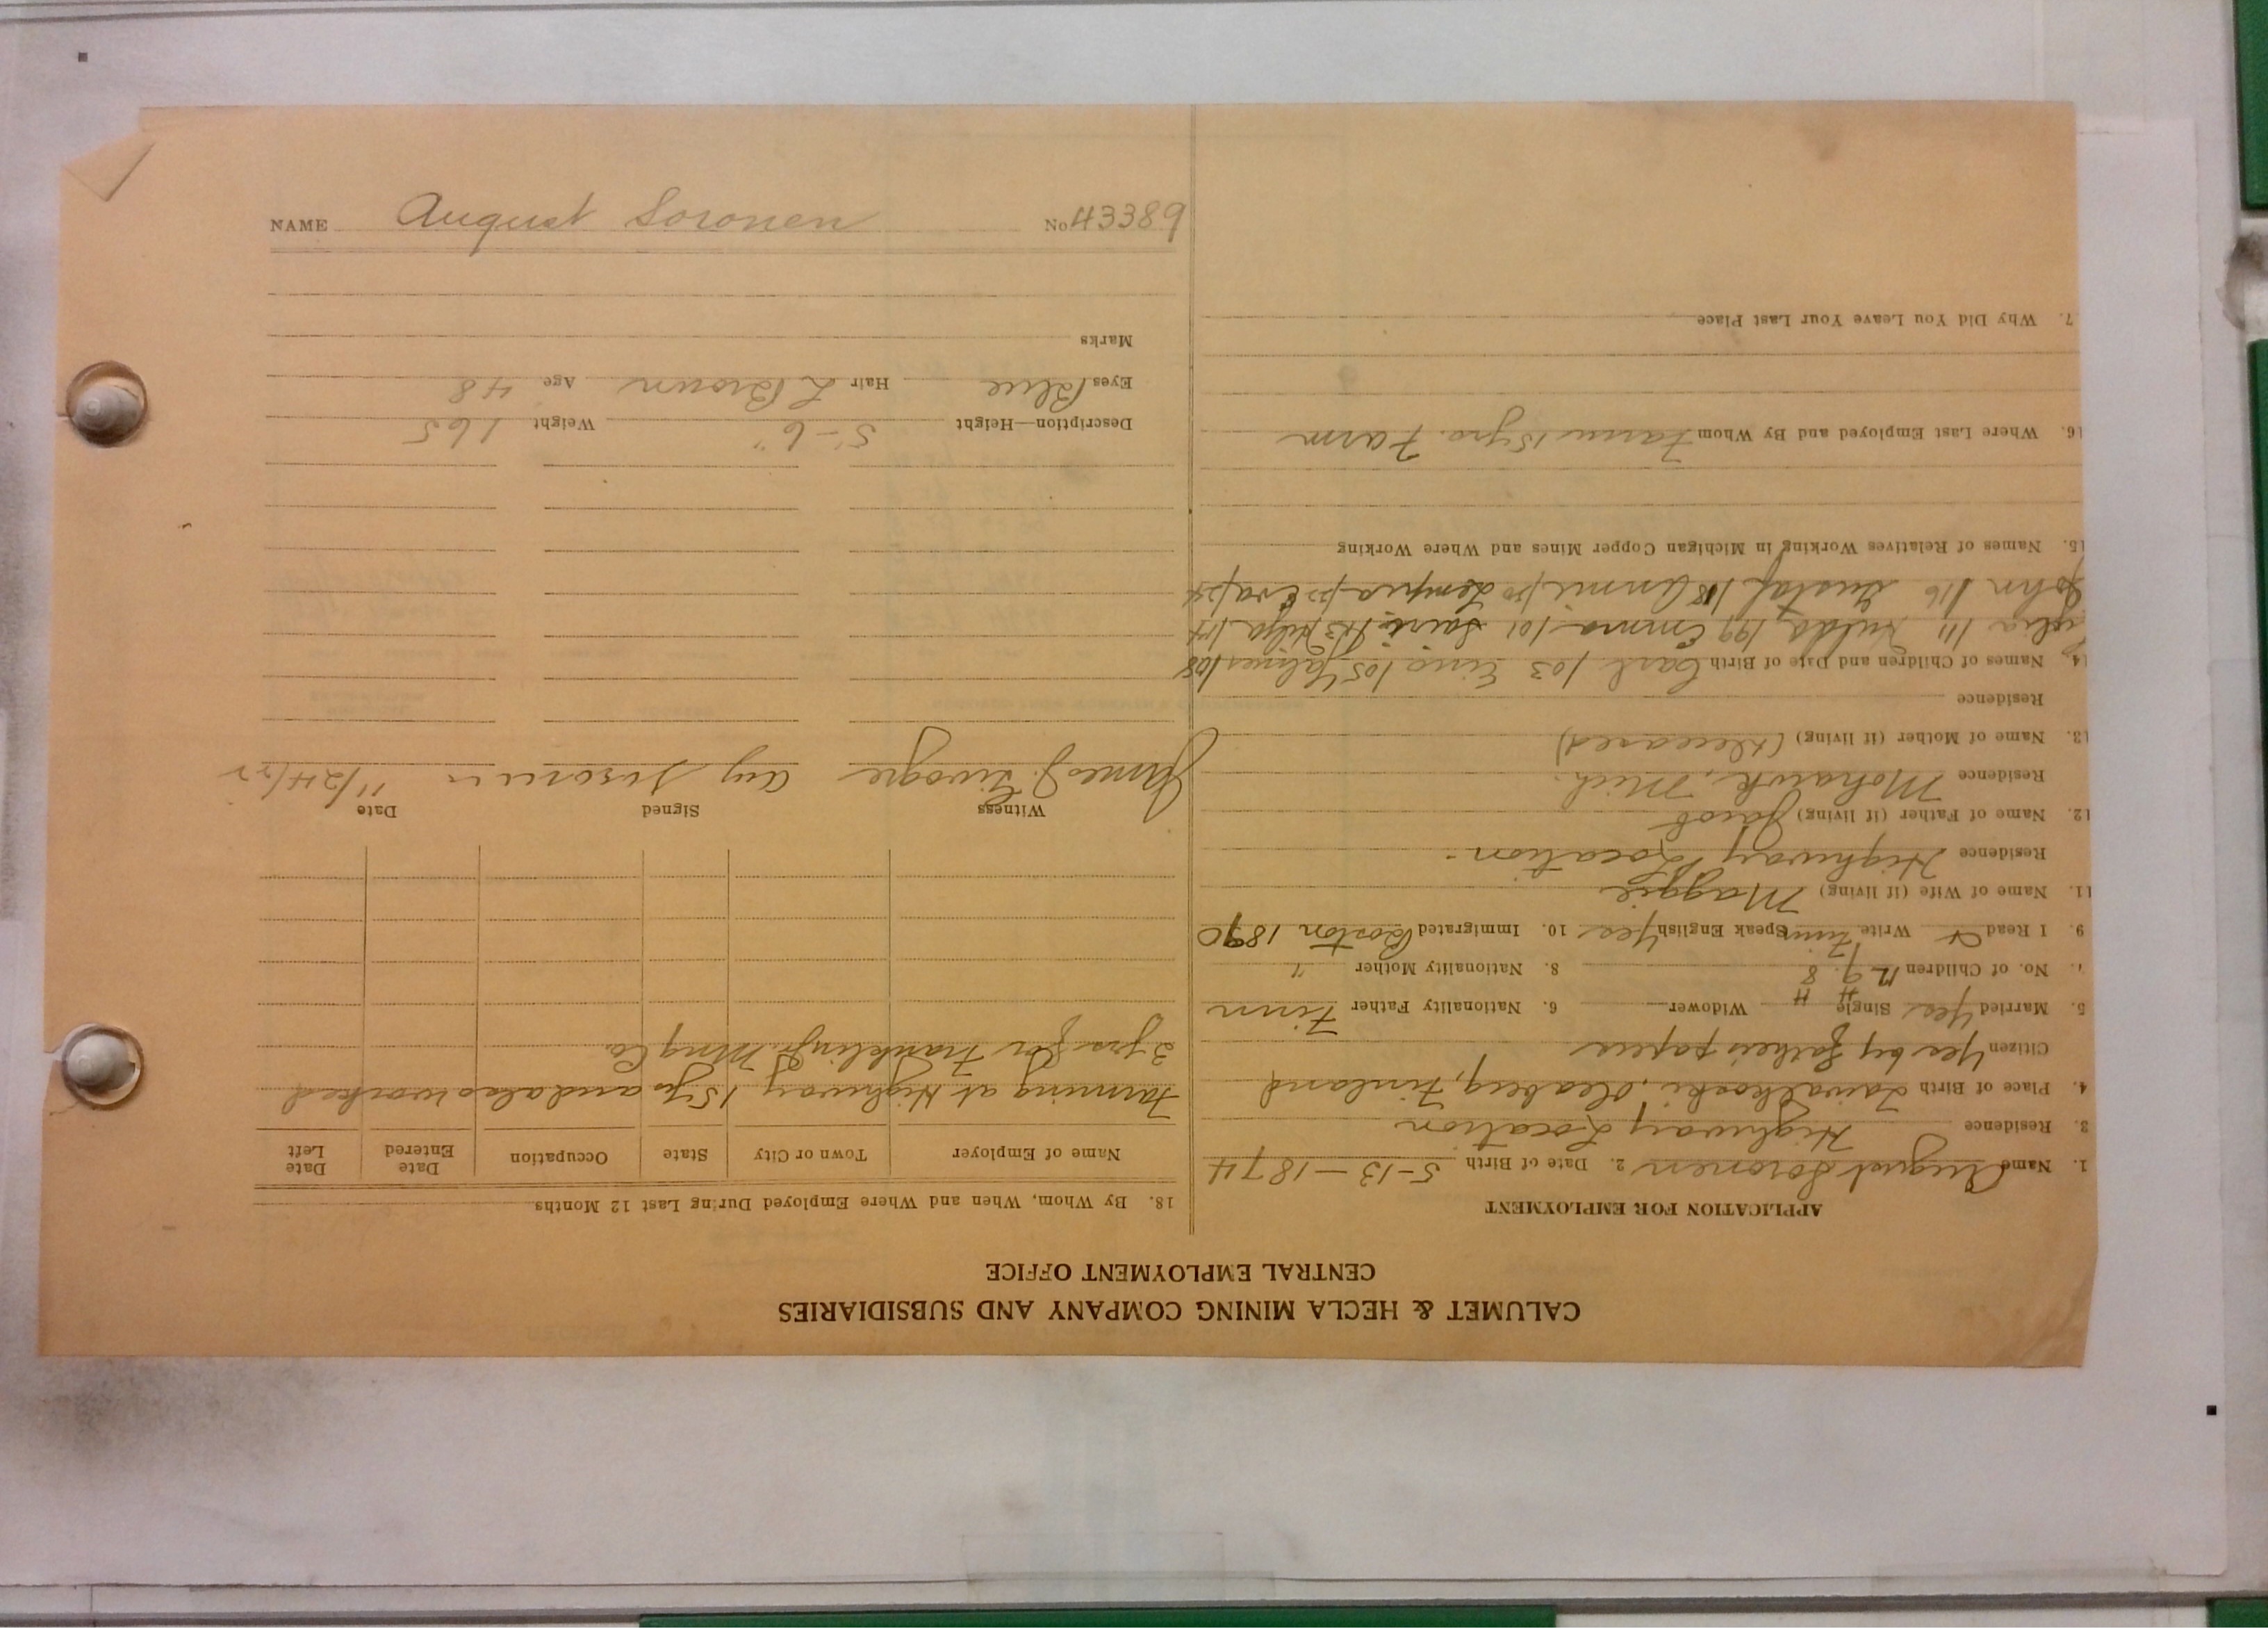 CALUMET & HECLA MINING COMPANY AND SUBSIDIARIES
CENTRAL EMPLOYMENT OFFICE
APPLICATION FOR EMPLOYMENT
1. Name August Soronen 2. Date of Birth 5-13-1874
3. Residence Highway Location
4. Place of Birth Taivalkoski, Oleaborg, Finland
Citizen Yes by father's papers
5. Married Yes Single " Widower " 6. Nationality Father Finn
7. No. of Children 12 9. 8 8. Nationality Mother "
9. I Read & Write Finn Speak English Yes 10. Immigrated Boston 1890
11. Name of Wife (if living) Maggie
Residence Highway Location.
12. Name of Father (if living) Jacob
Residence Mohawk, Mich.
13. Name of Mother (if living) (deceased)
Residence
14. Names of Children and Date of Birth Carl /03 Eino /05 Yalmer /08
/11 Hulda /99 Emma /01 /13 Hilja /14
John /16 Gustaf /18 /20 Lempia /22 Eva /24
15. Names of Relatives Working in Michigan Copper Mines and Where Working
16. Where Last Employed and By Whom Farm 15 yrs. Farm
7. Why Did You Leave Your Last Place
18. By Whom, When and Where Employed During Last 12 Months
Name of Employer Town or City State Occupation Date Entered Date Left
Farming at Highway 15 yrs and also worked
2 yrs for Franklin Mng Co.
Witness Signed Date
James J. Aug Soronen 11/24/22
Description—Height 5-6" Weight 165
Eyes Blue Hair L Brown Age 48
Marks
NAME August Soronen No 43389